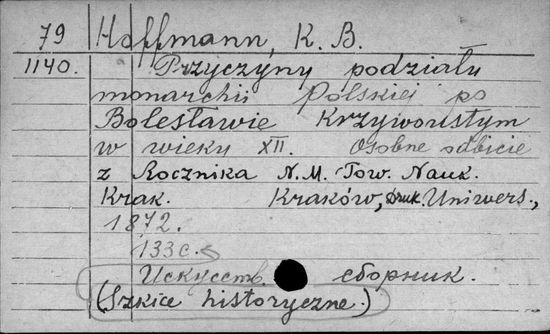 79 Hoffmann, K. B.
1140. Przyczyny podziału
monarchii Polskiej po
Bolesławie Krzywoustym
w wieku XII. Osobne odbicie
z Rocznika N.M. Tow. Nauk.
Krak. Kraków, druk. Uniwers.,
1872.
133 с.
Искусств. сборник.
(Szkice historyczne.)